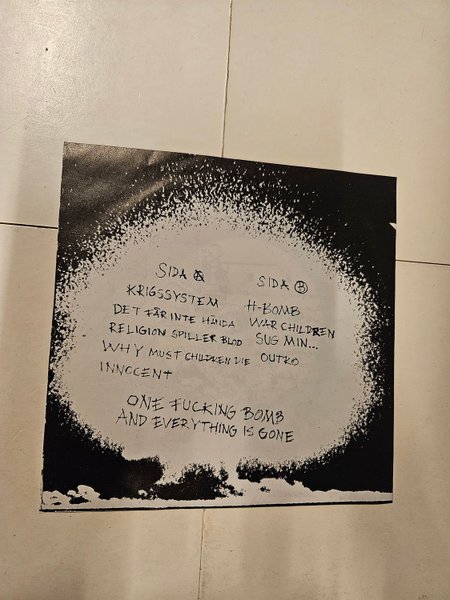 SIDA Ⓐ
KRIGSSYSTEM
DET FÅR INTE HÄNDA
RELIGION SPILLER BLOD
WHY MUST CHILDREN DIE
INNOCENT
SIDA Ⓑ
H-BOMB
WAR CHILDREN
SUG MIN...
OUTRO
ONE FUCKING BOMB
AND EVERYTHING IS GONE